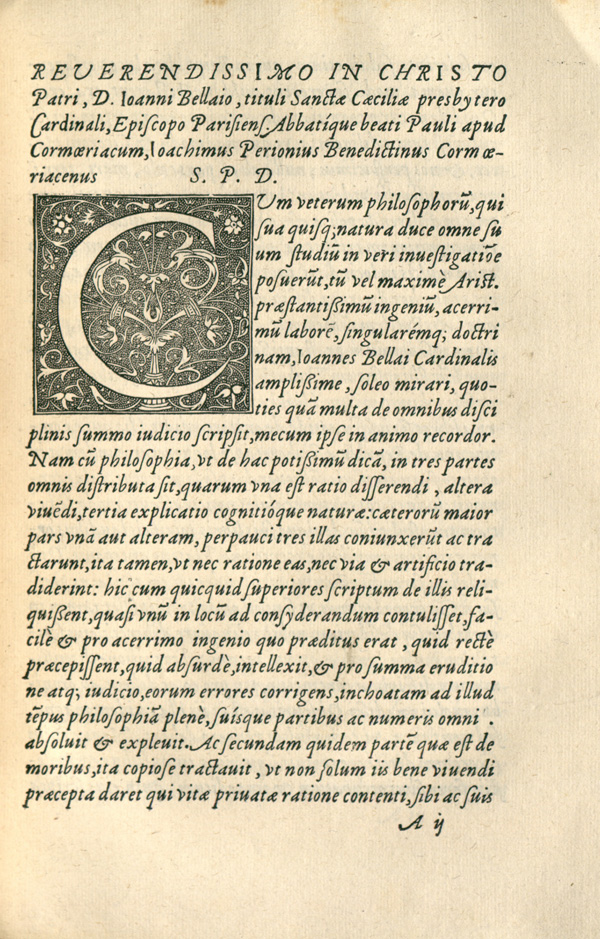 REVERENDISSIMO IN CHRISTO
Patri, D. Ioanni Bellaio, tituli Sanctæ Cæciliæ presbytero
Cardinali, Episcopo Parisiens. Abbatíque beati Pauli apud
Cormœriacum, Ioachimus Perionius Benedictinus Cormœ-
riacenus S. P. D.
CVm veterum philosophorũ, qui
sua quisq; natura duce omne su
um studiũ in veri inuestigatiõe
posuerũt, tũ vel maximè Arist.
præstantißimũ ingeniũ, acerri-
mũ laborẽ, singularémq; doctri
nam, Ioannes Bellai Cardinalis
amplißime, soleo mirari, quo-
ties quã multa de omnibus disci
plinis summo iudicio scripsit, mecum ipse in animo recordor.
Nam cũ philosophia, vt de hac potißimũ dicã, in tres partes
omnis distributa sit, quarum vna est ratio disserendi, altera
viuẽdi, tertia explicatio cognitióque naturæ: cæterorũ maior
pars vnã aut alteram, perpauci tres illas coniunxerũt ac tra
ctarunt, ita tamen, vt nec ratione eas, nec via & artificio tra-
diderint: hic cum quicquid superiores scriptum de illis reli-
quißent, quasi vnũ in locũ ad consyderandum contulisset, fa-
cilè & pro acerrimo ingenio quo præditus erat, quid rectè
præcepissent, quid absurdè, intellexit, & pro summa eruditio
ne atq; iudicio, eorum errores corrigens, inchoatam ad illud
tẽpus philosophiã plenè, suísque partibus ac numeris omni .
absoluit & expleuit. Ac secundam quidem partẽ quæ est de
moribus, ita copiose tractauit, vt non solum iis bene viuendi
præcepta daret qui vitæ priuatæ ratione contenti, sibi ac suis
A ij